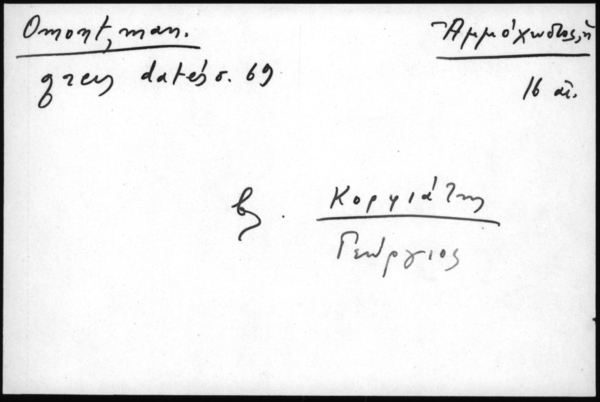 Omont, man.
grecs datés σ. 69
Ἀμμόχωστος, ἡ
16 αἰ.
βλ. Κορφιάτης
Γεώργιος